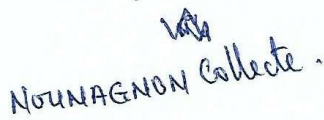 NOUNAGNON Collecte.